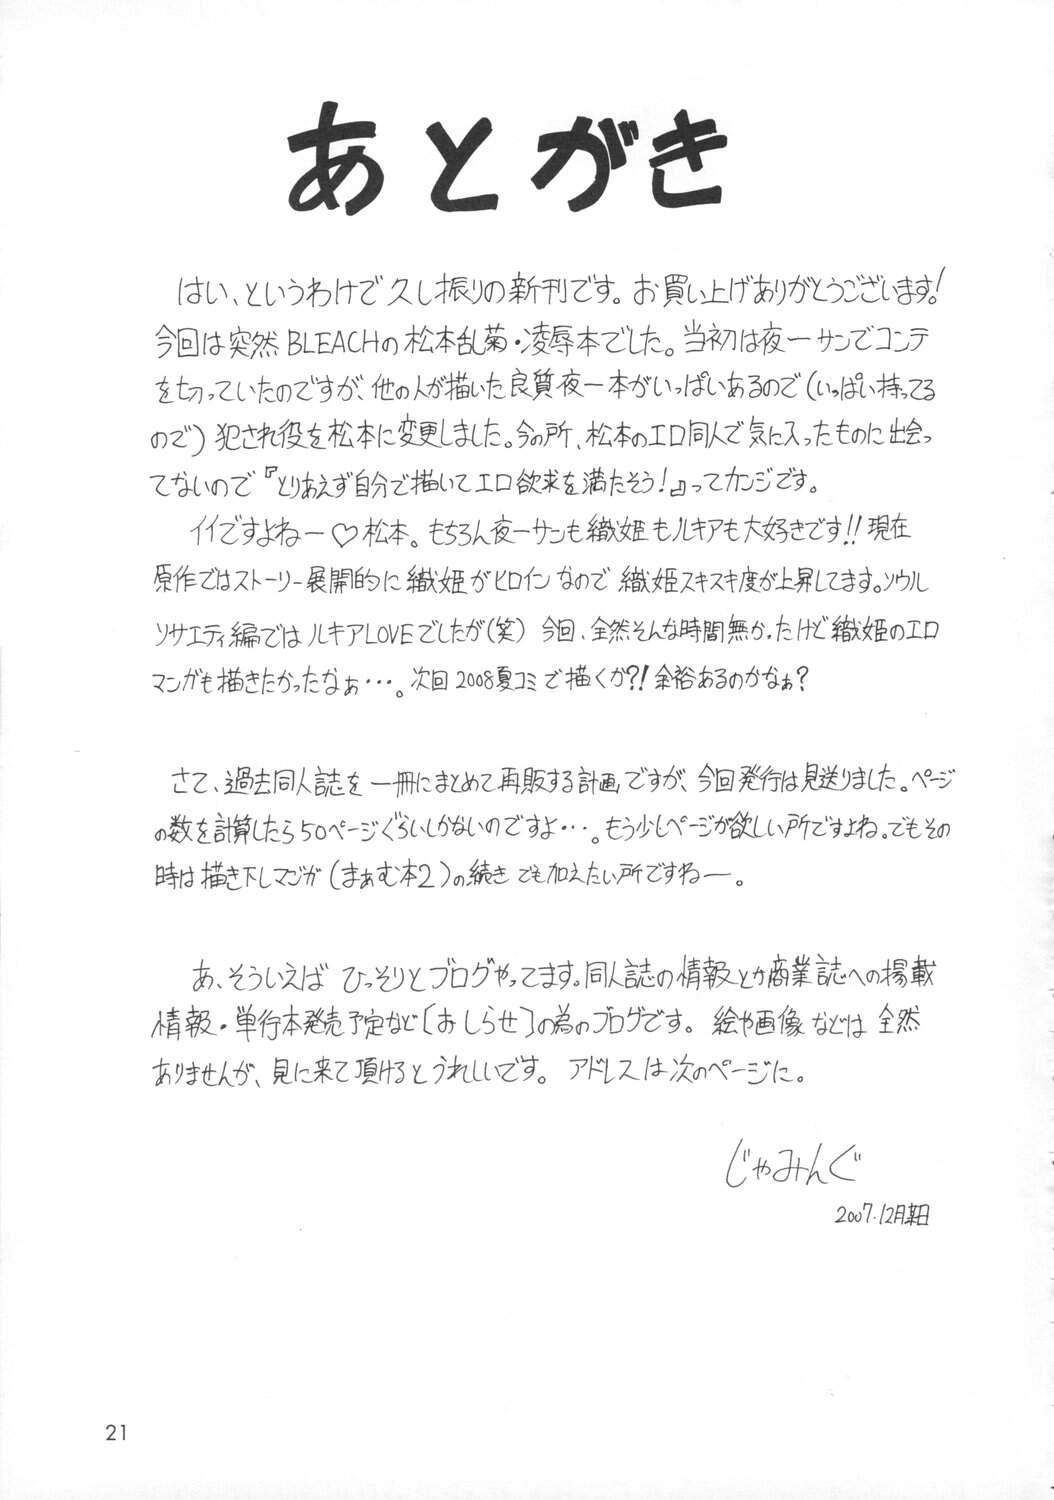 あとがき
はい、というわけで久し振りの新刊です。お買い上げありがとうございます！
今回は突然BLEACHの松本乱菊・凌辱本でした。当初は夜一サンでコンテ
を切っていたのですが、他の人が描いた良質夜一本がいっぱいあるので（いっぱい持ってる
ので）犯され役を松本に変更しました。今の所、松本のエロ同人で気に入ったものに出会っ
てないので『とりあえず自分で描いてエロ欲求を満たそう！』ってカンジです。
イイですよねー♡松本。もちろん夜一サンも織姫もルキアも大好きです!!現在
原作ではストーリー展開的に織姫がヒロインなので織姫スキスキ度が上昇してます。ソウル
ソサエティ編ではルキアLOVEでしたが（笑）今回、全然そんな時間無かったけど織姫のエロ
マンガも描きたかったなぁ…。次回2008夏コミで描くか?!余裕あるのかなぁ？
さて、過去同人誌を一冊にまとめて再販する計画ですが、今回発行は見送りました。ページ
の数を計算したら50ページぐらいしかないのですよ…。もう少しページが欲しい所ですよね。でもその
時は描き下しマンガ（まぁむ本2）の続きでも加えたい所ですねー。
あ、そういえばひっそりとブログやってます。同人誌の情報とか商業誌への掲載
情報・単行本発売予定など〔おしらせ〕の為のブログです。絵や画像などは全然
ありませんが、見に来て頂けるとうれしいです。アドレスは次のページに。
じゃみんぐ
2007.12月某日
21